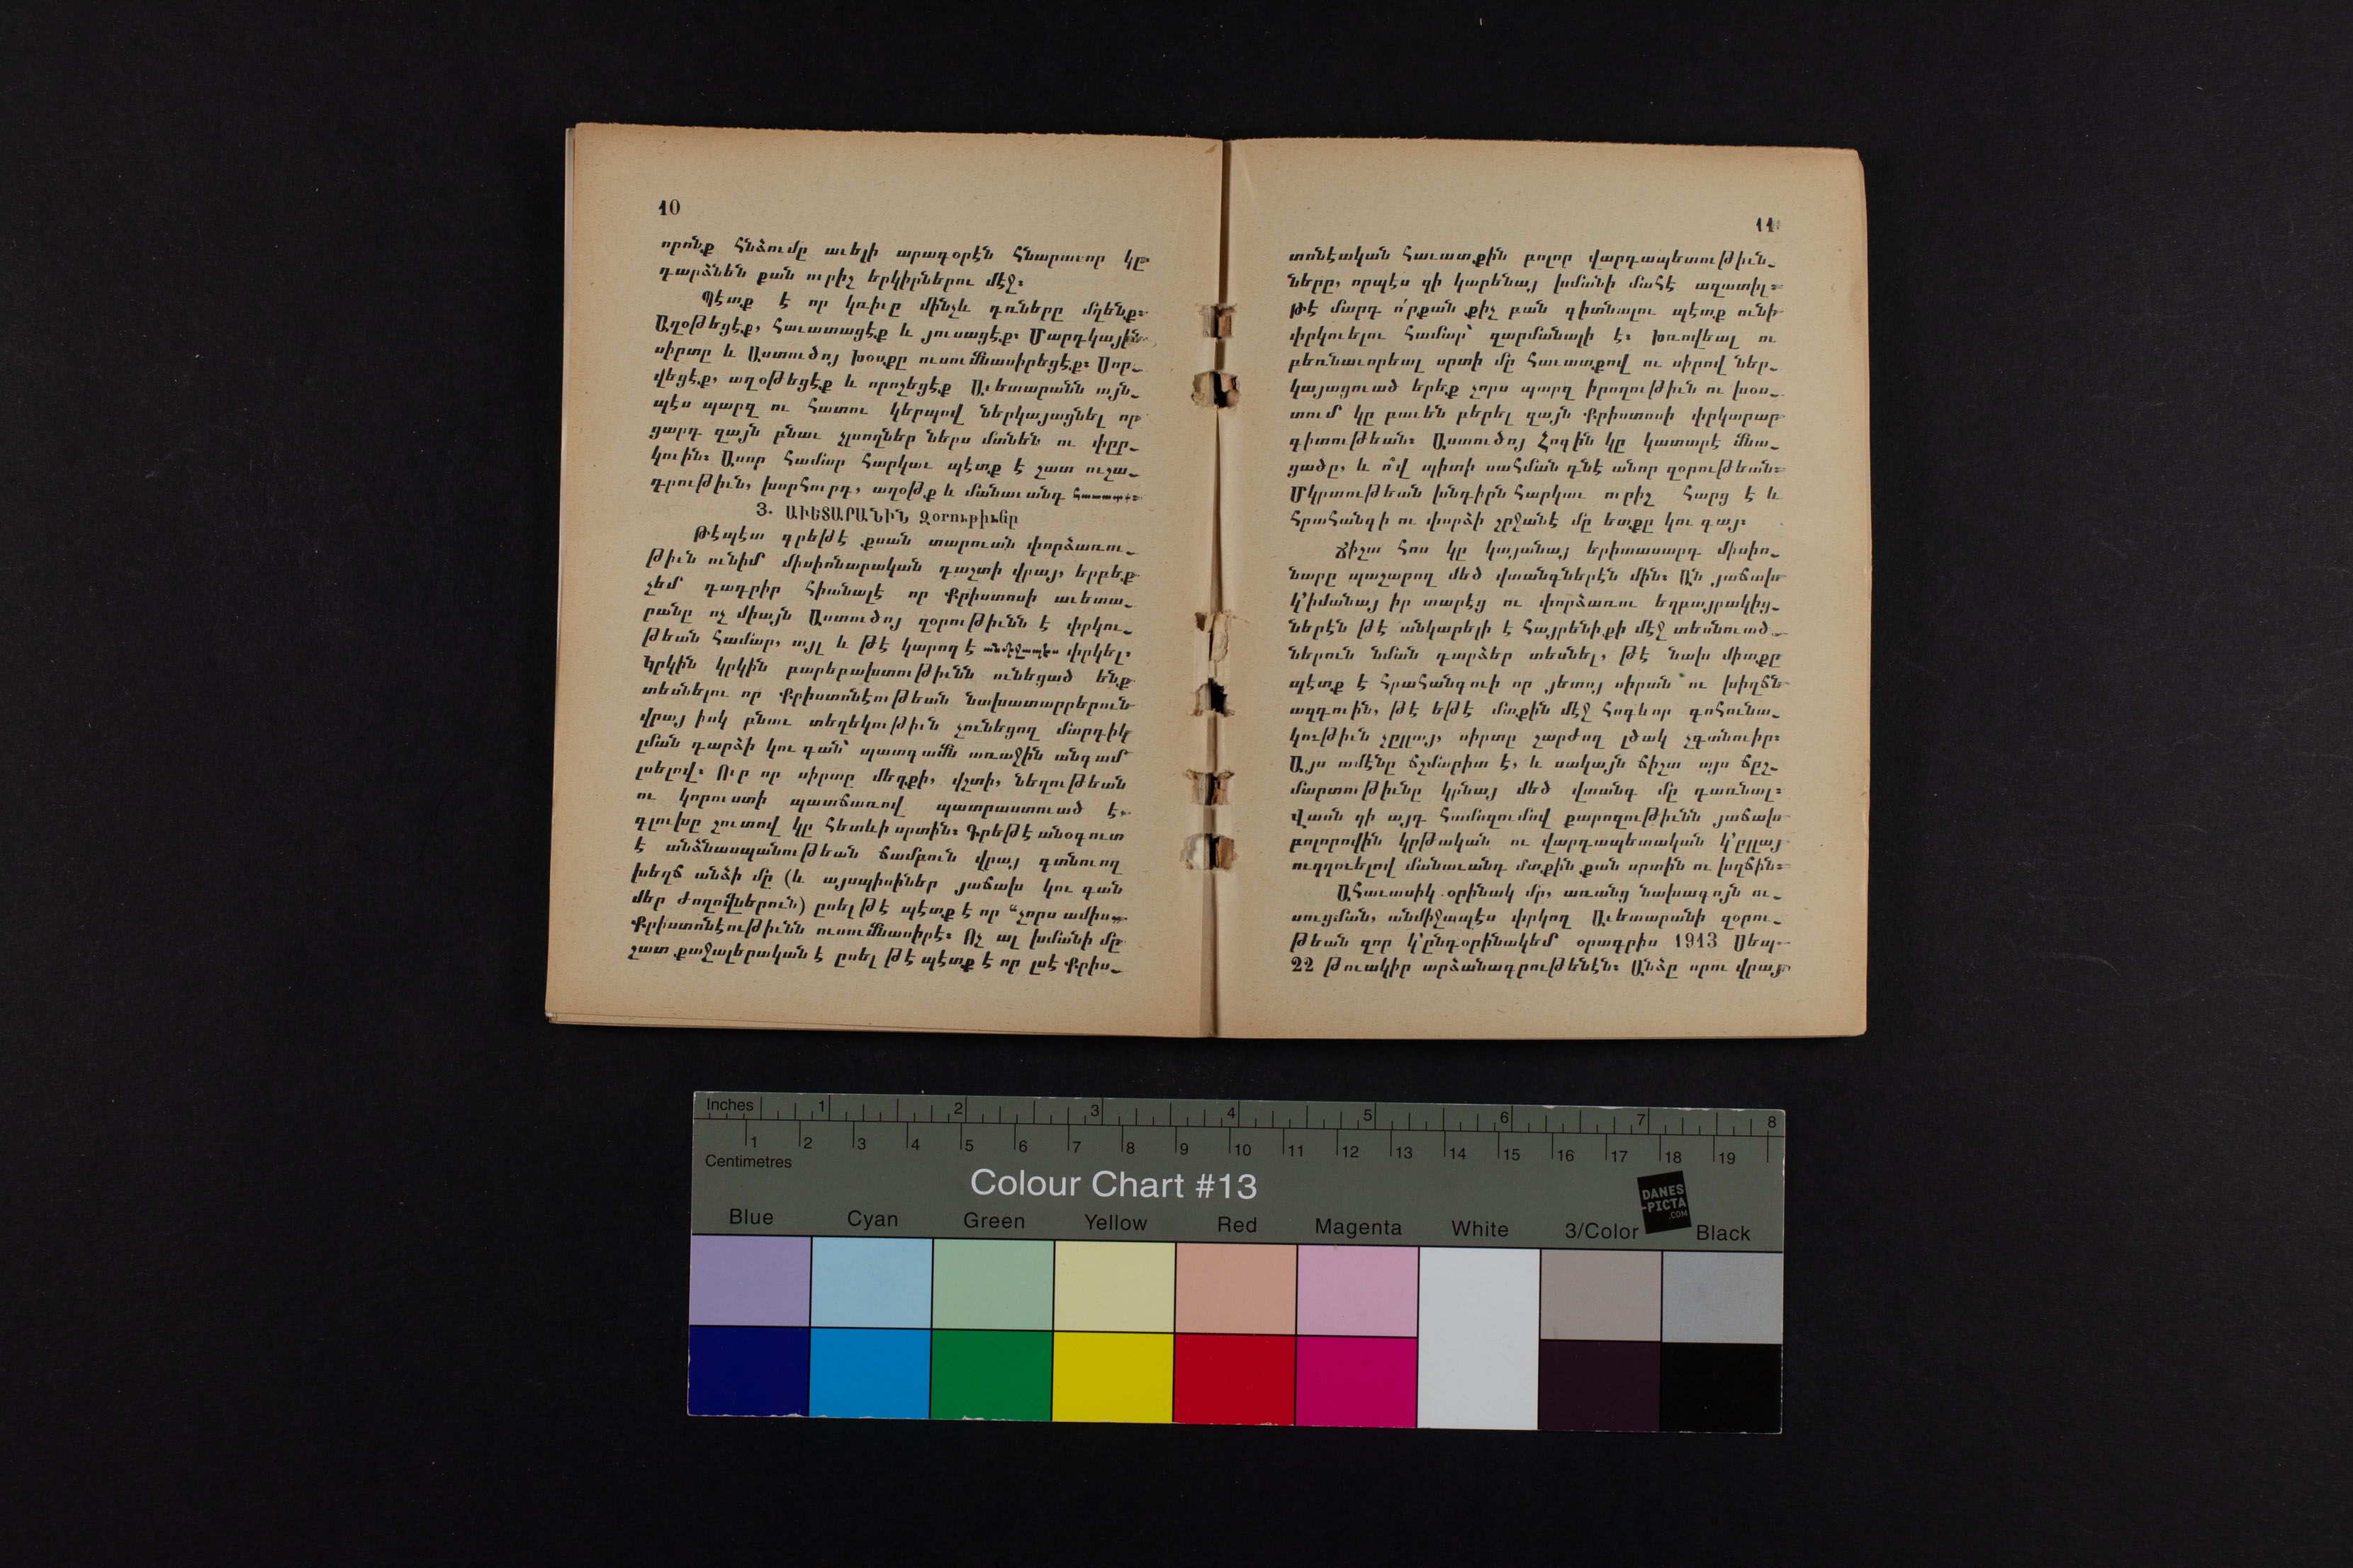 10
որոնք հնձումը աւելի արագօրէն հնարաւոր կը
դարձնեն քան ուրիշ երկիրներու մէջ։
Պէտք է որ կռիւը մինչև դռները մղենք։
Աղօթեցէք, հաւատացէք և յուսացէք։ Մարդկային
սիրտը և Աստուծոյ խօսքը ուսումնասիրեցէք։ Սոր-
վեցէք, աղօթեցէք և որոշեցէք Աւետարանն այն-
պէս պարզ ու հատու կերպով ներկայացնել որ
ցարդ զայն բնաւ չլսողներ ներս մտնեն ու փըր-
կուին։ Ասոր համար հարկաւ պէտք է շատ ուշա-
դրութիւն, խորհուրդ, աղօթք և մանաւանդ հաւատք։
3. ԱՒԵՏԱՐԱՆԻՆ Զօրութիւնը
Թէպէտ գրեթէ քսան տարուան փորձառու-
թիւն ունիմ միսիոնարական դաշտի վրայ, երբեք
չեմ դադրիր հիանալէ որ Քրիստոսի աւետա-
րանը ոչ միայն Աստուծոյ զօրութիւնն է փրկու-
թեան համար, այլ և թէ կարող է անմիջապէս փրկել։
Կրկին կրկին բարեբախտութիւնն ունեցած ենք
տեսնելու որ Քրիստոնէութեան նախատարրերուն
վրայ իսկ բնաւ տեղեկութիւն չունեցող մարդիկ
լման դարձի կու գան՝ պատգամն առաջին անգամ
լսելով։ Ուր որ սիրտը մեղքի, վշտի, նեղութեան
ու կորուստի պատճառով պատրաստուած է,
գլուխը շուտով կը հետևի սրտին։ Գրեթէ անօգուտ
է անձնասպանութեան ճամբուն վրայ գտնուող
խեղճ անձի մը (և այսպիսիներ յաճախ կու գան
մեր ժողովներուն) ըսել թէ պէտք է որ “չորս ամիս„
Քրիստոնէութիւնն ուսումնասիրէ։ Ոչ ալ խմանի մը
շատ քաջալերական է ըսել թէ պէտք է որ լսէ Քրիս-
11
տոնէական հաւատքին բոլոր վարդապետութիւն-
ները, որպէս զի կարենայ խմանի մահէ ազատիլ։
Թէ մարդ ո՛րքան քիչ բան գիտնալու պէտք ունի
փրկուելու համար՝ զարմանալի է։ Խռովեալ ու
բեռնաւորեալ սրտի մը հաւատքով ու սիրով ներ-
կայացուած երեք չորս պարզ իրողութիւն ու խօս-
տում կը բաւեն բերել զայն Քրիստոսի փրկարար
գիտութեան։ Աստուծոյ Հոգին կը կատարէ մնա-
ցածը, և ո՞վ պիտի սահման դնէ անոր զօրութեան։
Մկրտութեան խնդիրն հարկաւ ուրիշ հարց է և
հրահանգի ու փորձի շրջանէ մը ետքը կու գայ։
Ճիշտ հոս կը կայանայ երիտասարդ միսիո-
նարը պաշարող մեծ վտանգներէն մին։ Ան յաճախ
կ’իմանայ իր տարէց ու փորձառու եղբայրակից-
ներէն թէ անկարելի է հայրենիքի մէջ տեսնուած
ներուն նման դարձեր տեսնել, թէ նախ միտքը
պէտք է հրահանգուի որ յետոյ սիրտն ու խիղճն
ազդուին, թէ եթէ մտքին մէջ հոգևոր գոհունա-
կութիւն չըլլայ, սիրտը շարժող լծակ չգտնուիր։
Այս ամէնը ճշմարիտ է, և սակայն ճիշտ այս ճըշ-
մարտութիւնը կրնայ մեծ վտանգ մը դառնալ։
Վասն զի այդ համոզումով քարոզութիւնն յաճախ
բոլորովին կրթական ու վարդապետական կ’ըլլայ
ուղղուելով մանաւանդ մտքին քան սրտին ու խղճին։
Ահաւասիկ օրինակ մը, առանց նախագոյն ու-
սուցման, անմիջապէս փրկող Աւետարանի զօրու-
թեան զոր կ’ընդօրինակեմ օրագրիս 1913 Սեպ.
22 թուակիր արձանագրութենէն։ Անձը որու վրայ
Inches 1 2 3 4 5 6 7 8
1 2 3 4 5 6 7 8 9 10 11 12 13 14 15 16 17 18 19
Centimetres
Colour Chart #13
DANES
-PICTA
.COM
Blue Cyan Green Yellow Red Magenta White 3/Color Black